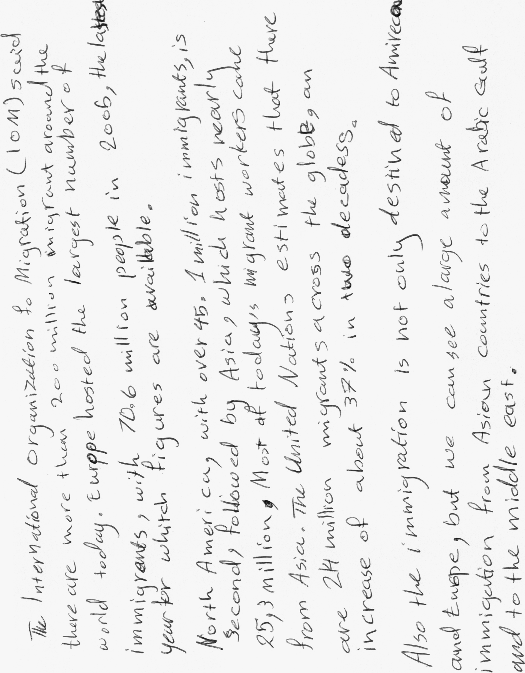 The International organization fo Migration (IOM) said
there are more than 200 million migrant around the
world today. Europe hosted the largest number of
immigrants, with 70.6 million people in 2006, the latest
year for which figures are available.
North America, with over 45.1 million immigrants, is
second, followed by Asia, which hosts nearly
25,3 million. Most of today,s migrant workers come
from Asia. The United Nations estimates that there
are 214 million migrants across the globe, an
increase of about 37% in two decadess.
Also the immigration is not only destined to Amirecan
and Europe, but we can see a large amount of
immigation from Asian countries to the Arabic Gulf
and to the middle east.